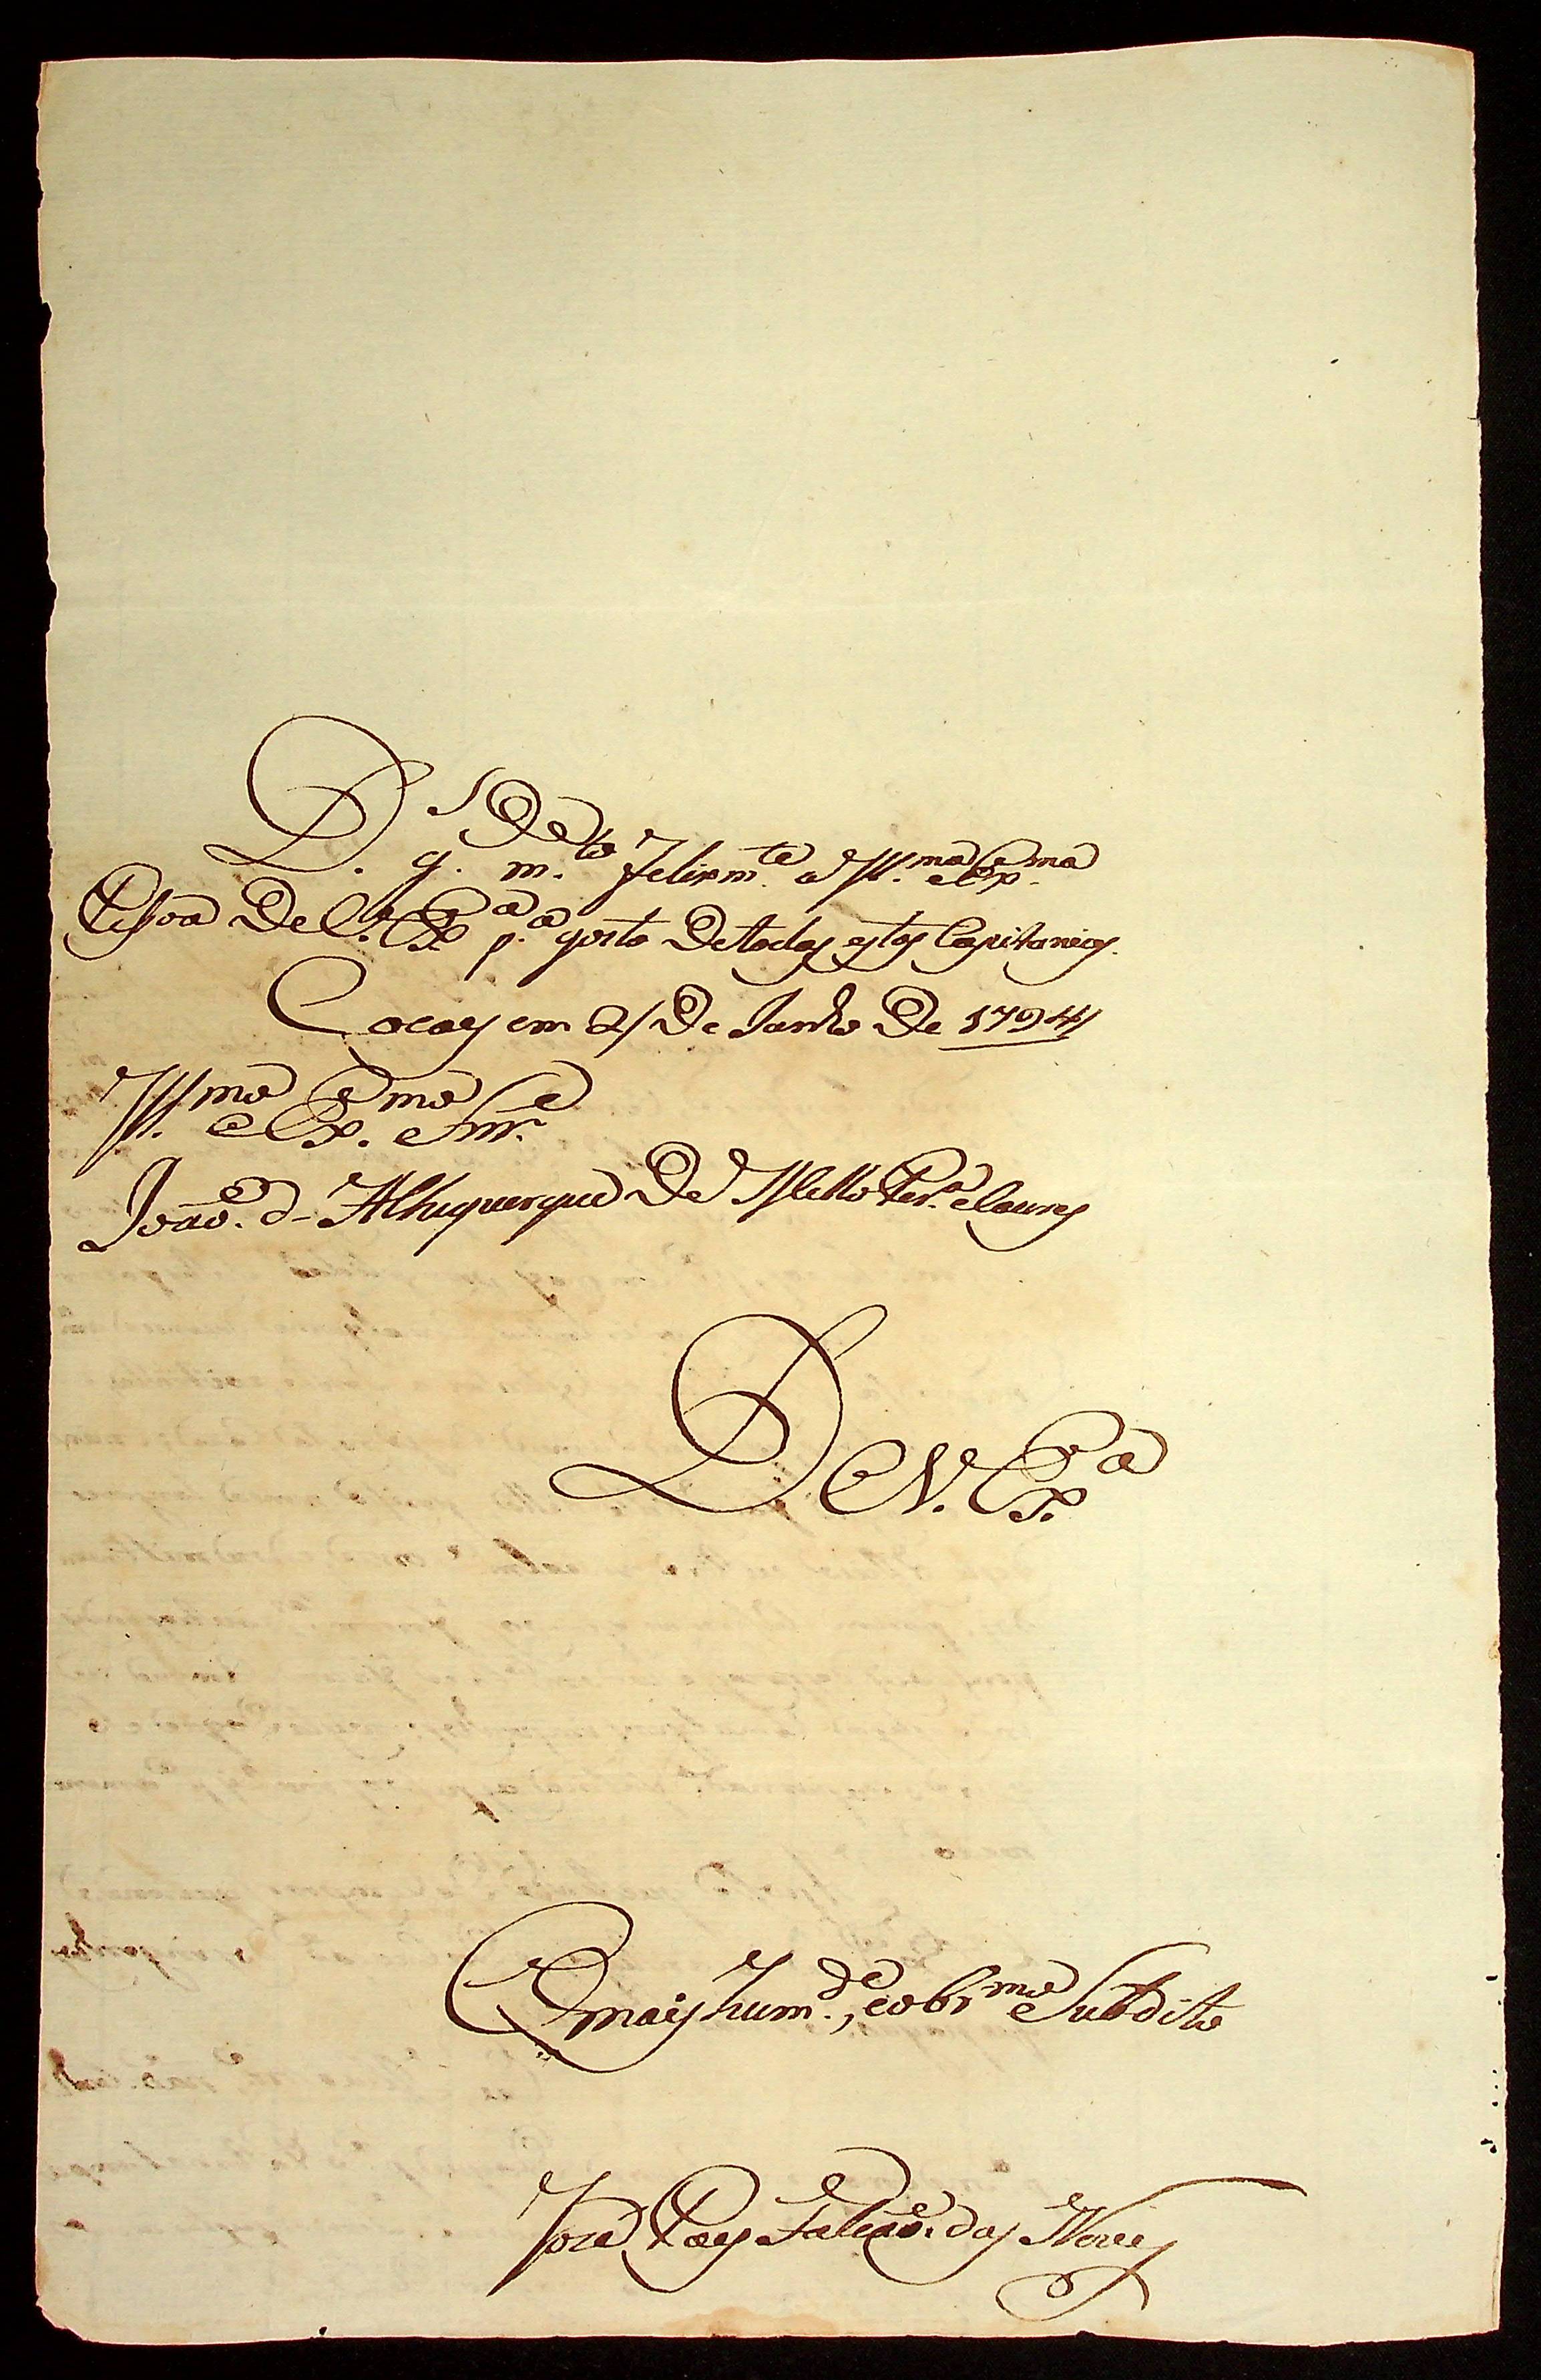 D.s g.De m.to felixm.te a Ill.ma e Ex.ma
Pesoa De V. Ex.a p.a gosto De todas estas Capitanias.
Cocaes em 2/ De Junho De 1794//
Ill.mo e Ex.mo Snr.e
João d- Albuquerque De Mello Per.a e Caceres
De V. Ex.a
O mais hum.de, e obr.mo Subdito
José Paes Falcão das Neves